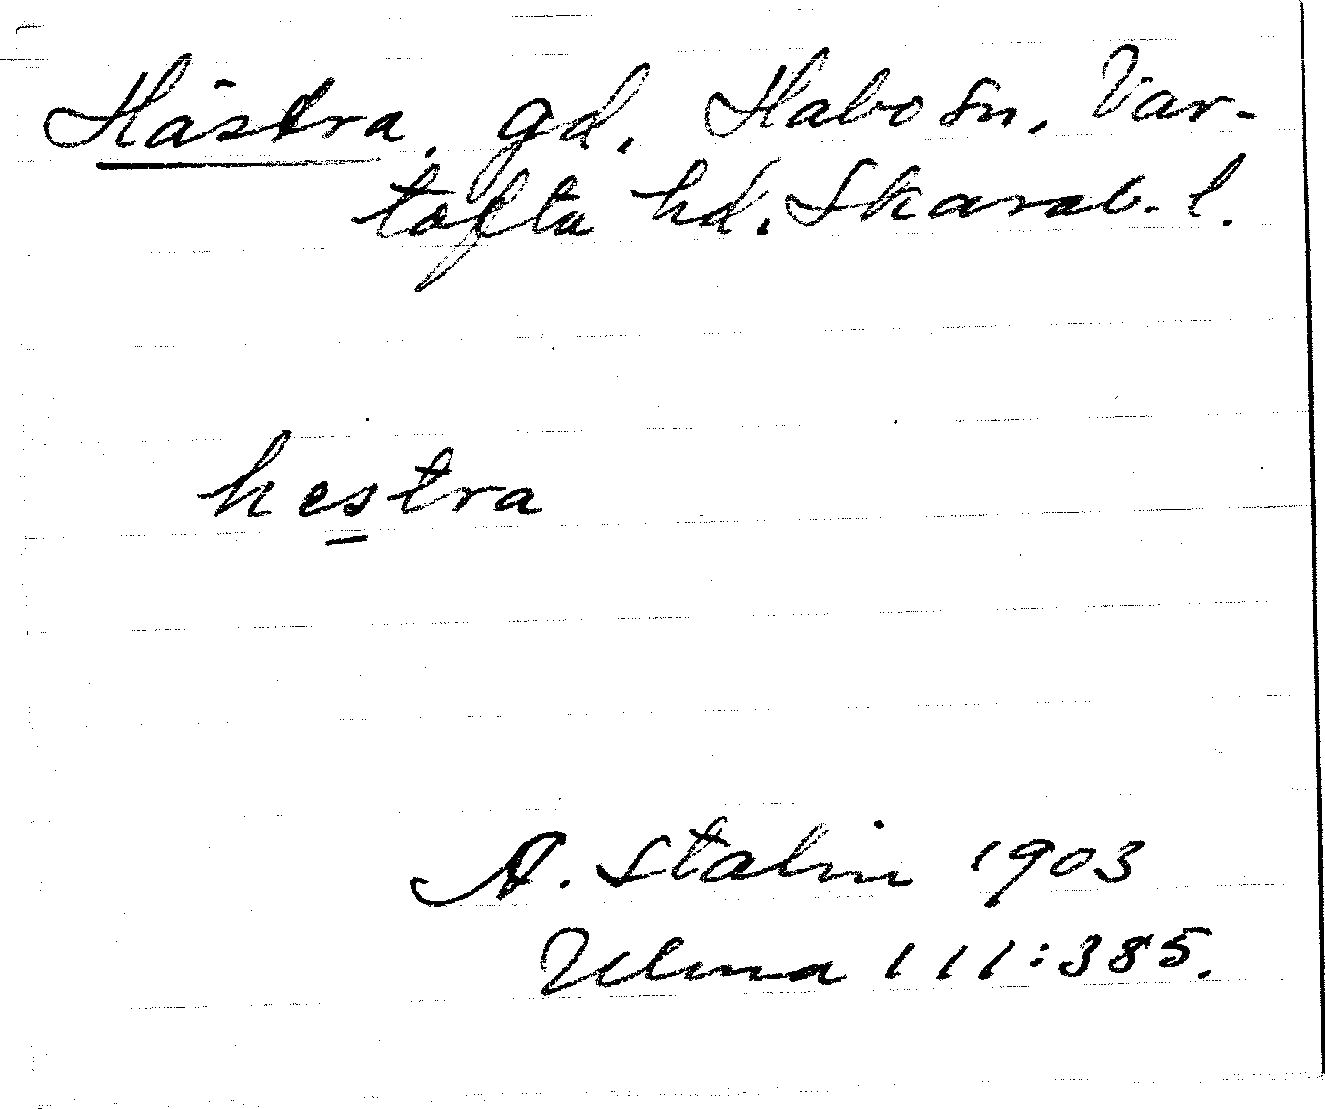 Hästra, gd, Habo sn, Var-
tofta hd, Skarab. l.
hestra
A. Stalin 1903
Ulma 111:385.